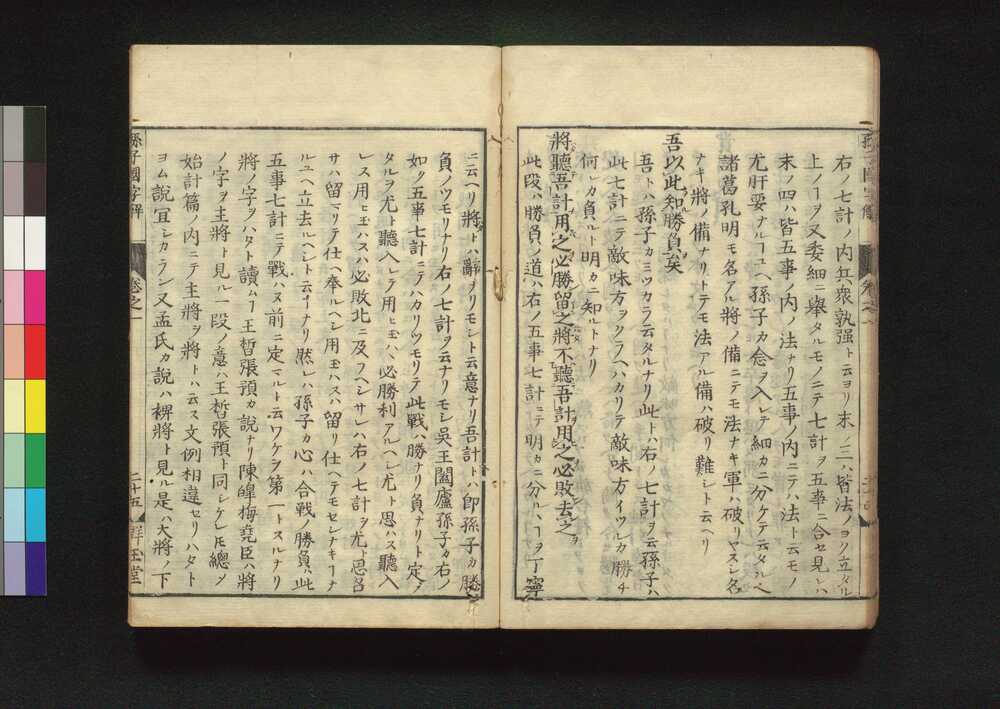 右ノ七計ノ内兵衆孰强ト云ヨリ末ノ三ハ皆法ノヨク立タル
上ノヿヲ又委細ニ擧タルモノニテ七計ヲ五事ニ合セ見レハ
末ノ四ハ皆五事ノ内ノ法ナリ五事ノ内ニテハ法ト云モノ
尤肝要ナルユヘ孫子カ念ヲ入レテ細カニ分ケテ云タルヘ
諸葛孔明モ名アル將ノ備ニテモ法ナキ軍ハ破リヤスシ名
ナキ將ノ備ナリトテモ法アル備ハ破リ難シト云ヘリ
吾以此知勝負矣
吾トハ孫子カミツカラ云タルナリ此トハ右ノ七計ヲ云孫子ハ
此七計ニテ敵味方ヲツモリハカリテ敵味方イツレカ勝チ
何レカ負ルト明カニ知ルトナリ
將聽吾計用之必勝留之將不聽吾計用之必敗去之
此段ハ勝負ノ道ハ右ノ五事七計ニテ明カニ分ルヽヿヲ丁寧
ニ云ヘリ將トハ辭ナリモシト云意ナリ吾計トハ卽孫子カ勝
負ノツモリナリ右ノ七計ヲ云ナリモシ吳王闔廬孫子カ右ノ
如ク五事七計ニテハカリツモリテ此戰ハ勝ナリ負ナリト定メ
タルヲ尤ト聽入レテ用ヒ玉ハヽ必勝利アルヘシ尤ト思ハス聽入
レス用ヒ玉ハスハ必敗北ニ及フヘシサレハ右ノ七計ヲ尤ト思召
サハ留マリテ仕ヘ奉ルヘシ用玉ハスハ留リ仕ヘテモセンナキヿナ
ルユヘ立去ルヘシト云ヿナリ然レハ孫子カ心ハ合戰ノ勝負ハ此
五事七計ニテ戰ハヌ前ニ定マルト云ワケヲ第一トスルナリ
將ノ字ヲハタト讀ムヿ王晳張預カ說ナリ陳皥梅堯臣ハ將
ノ字ヲ主將ト見ル一段ノ意ハ王晳張預ト同シケレ𪜈總シテ
始計篇ノ内ニテ主將ヲ將トハ云ス文例相違セリハタト
ヨム說宜シカラン又孟氏カ說ハ裨將ト見ル是ハ大將ノ下
孫子國字解
卷之一
二十五
群玉堂